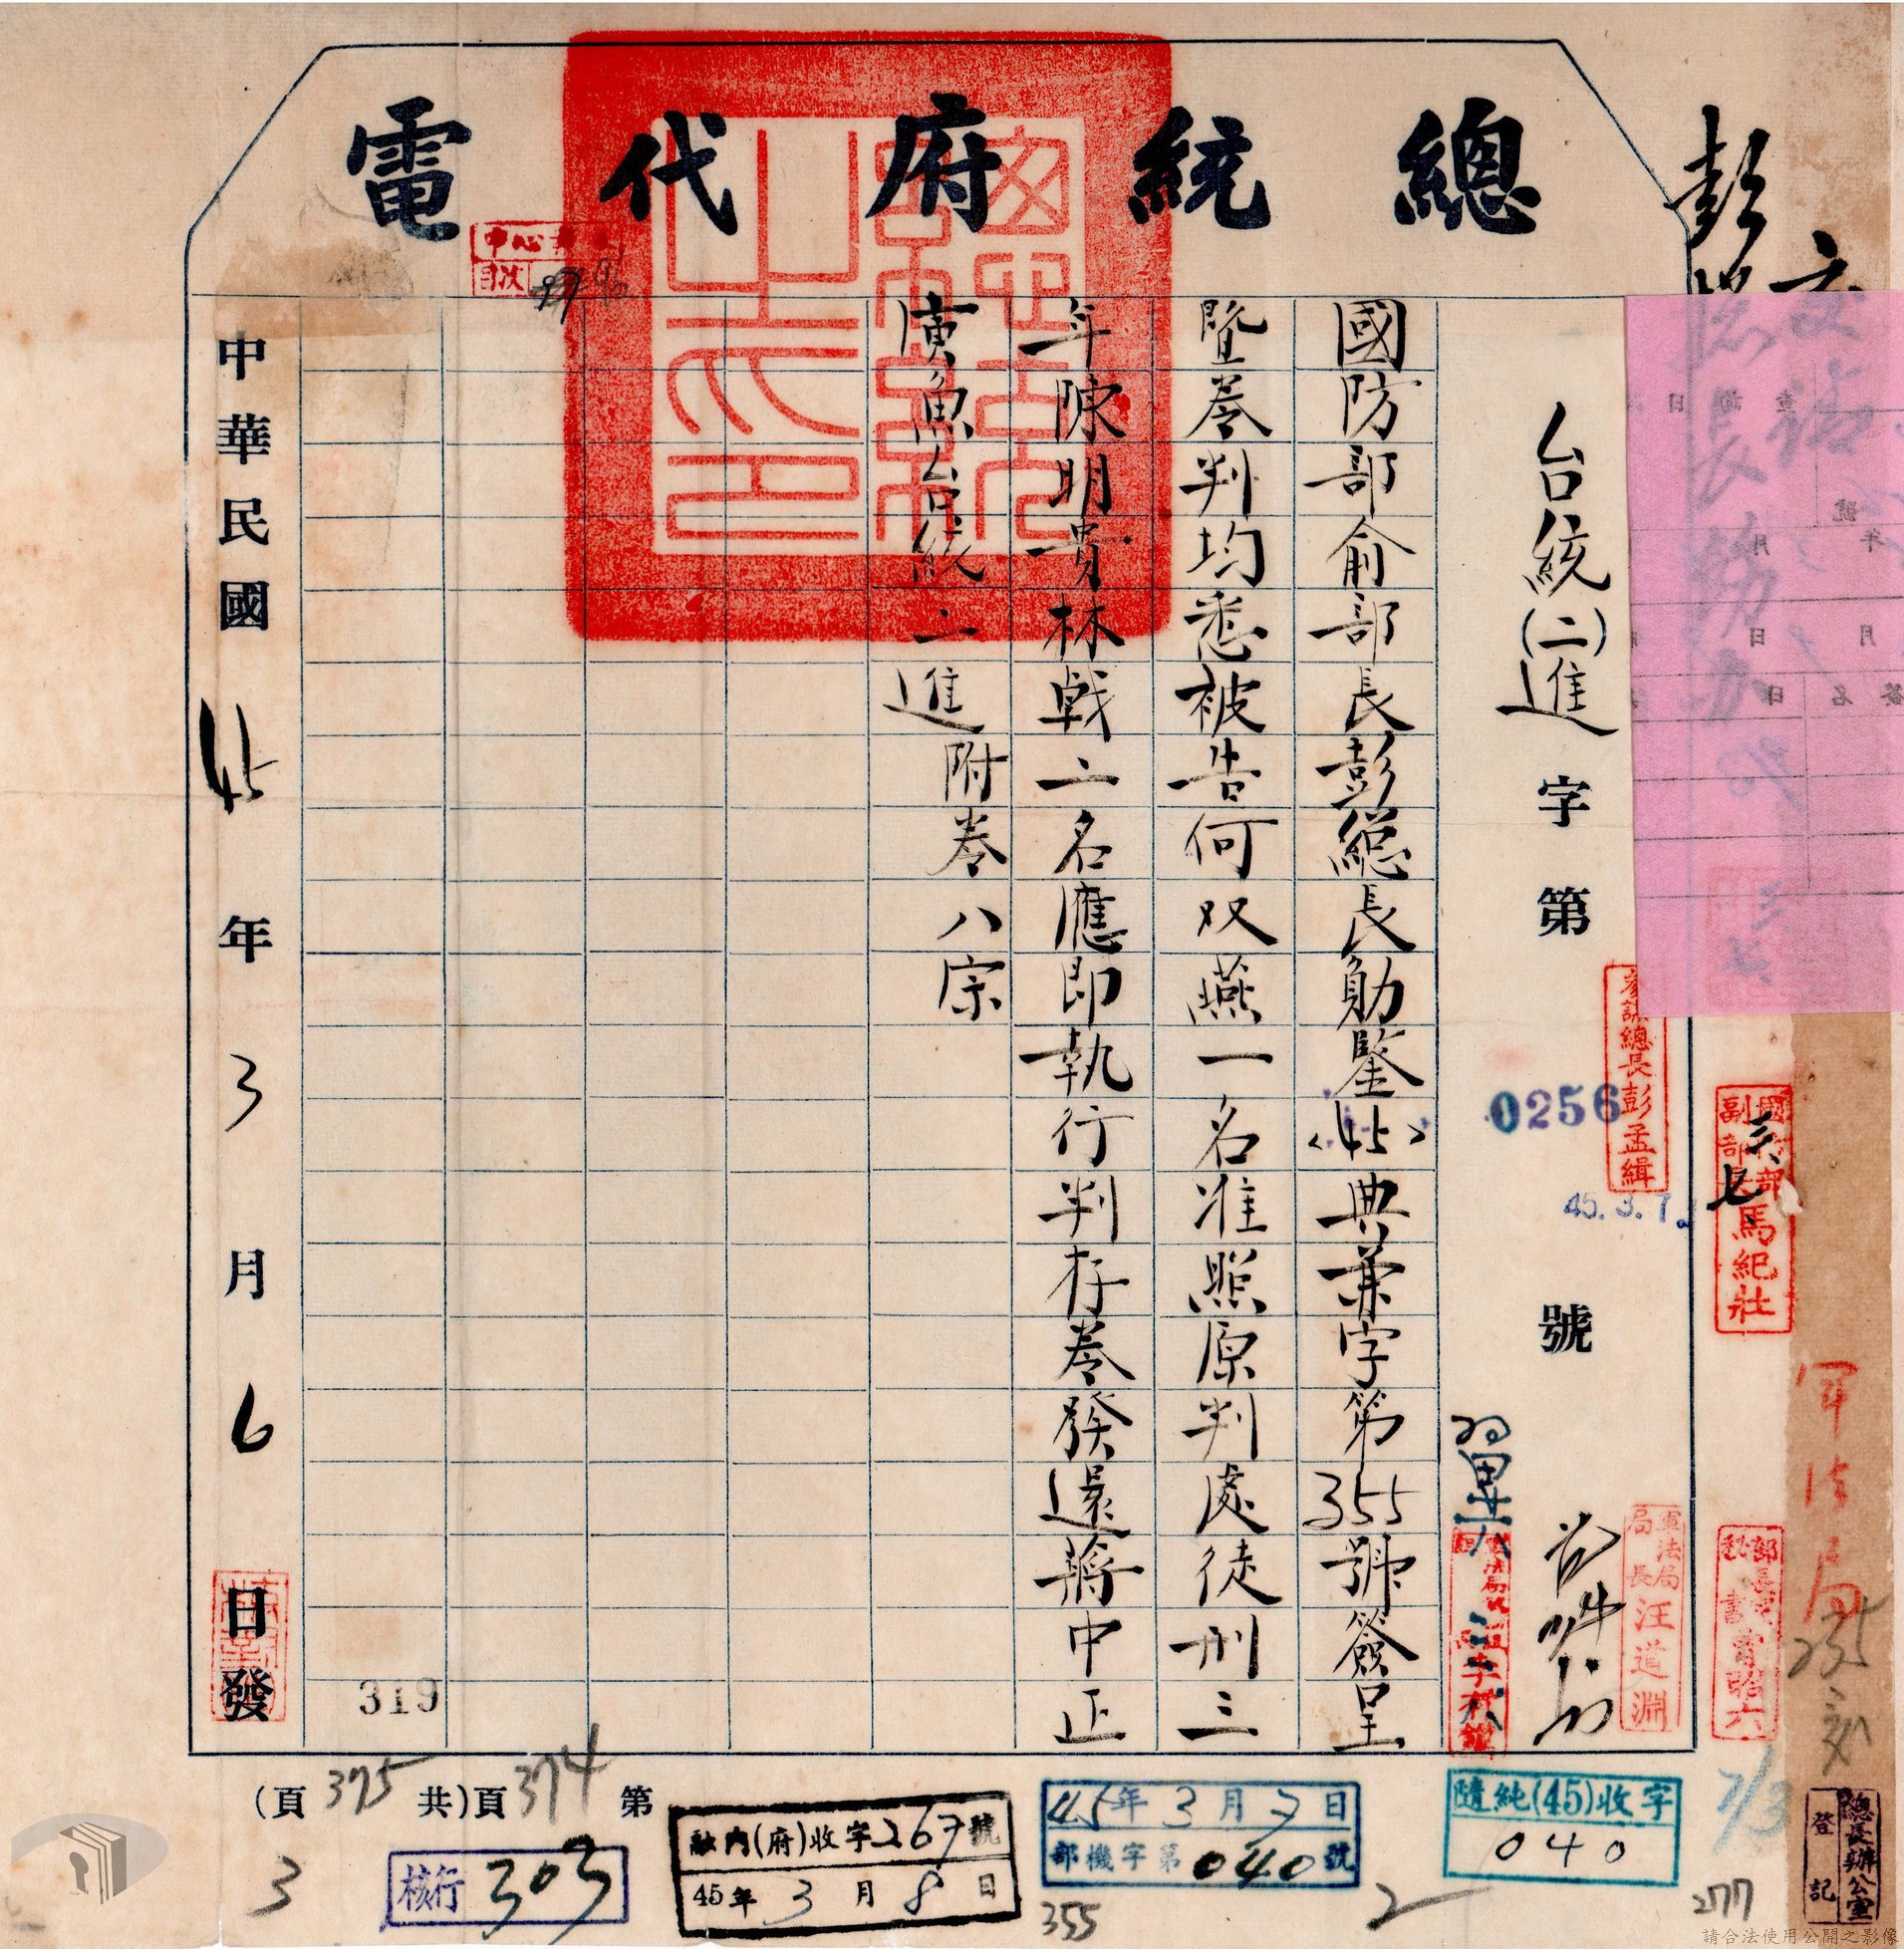 總統府代電
台統(二)進字第
0256
號
國防部俞部長彭總長勛鑒<45>典兼字第355號簽呈
暨卷判均悉被告何双燕一名准照原判處徒刑三
年陳明貴林戟二名應即執行判存卷發還蔣中正
寅魚台統二進附卷八宗
中華民國45年3月6日發
319
參謀總長彭孟緝
45.3.7.
國防部副部長馬紀壯
三七
軍法局局長汪道淵
軍法局
(頁375共)頁374第
3
核行303
45年3月8日
45年3月7日
部機字第040號
355
隨純(45)收字
040
2
7/3
277
總長辦公室
登記
請合法使用公開之影像